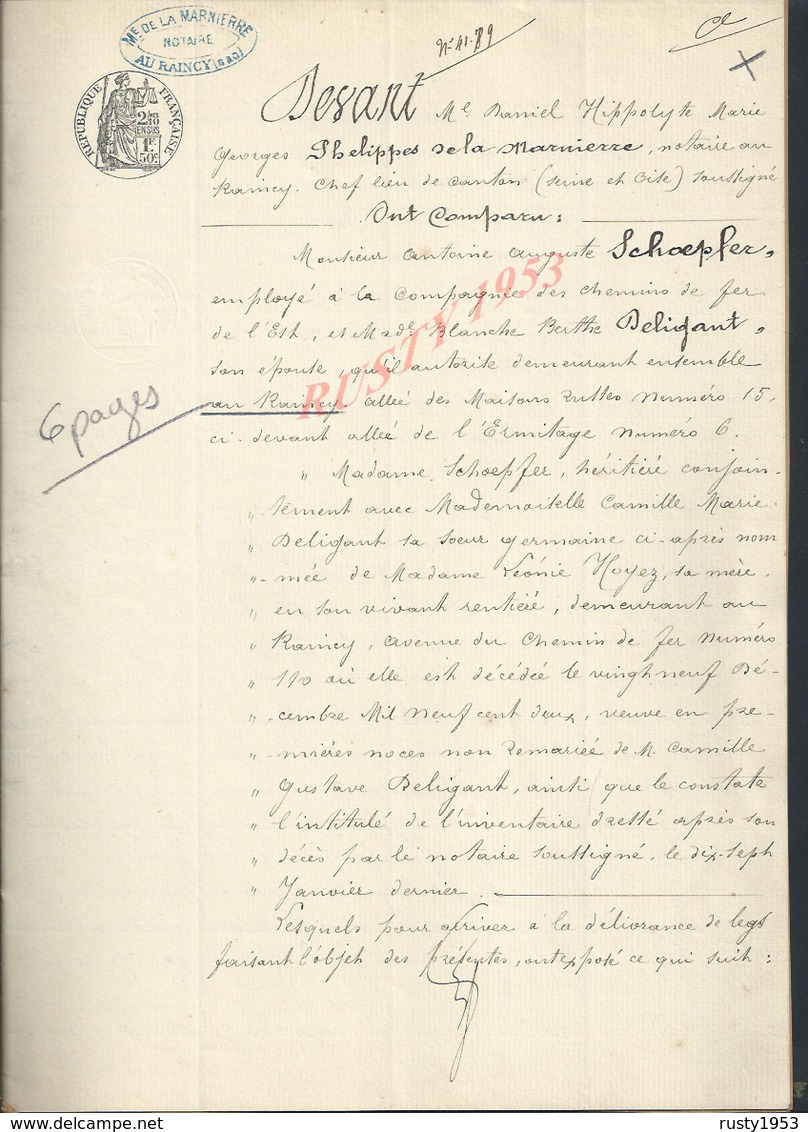 Me DE LA MARNIERRE
NOTAIRE
AU RAINCY (S&O)
REPUBLIQUE FRANÇAISE
2/10
EN SUS
1F.
50c.
6 pages
Devant Me Daniel Hippolyte Marie
Georges Phelippes de la Marnierre, notaire au
Raincy, Chef lieu de canton (Seine et Oise) soussigné
Ont Comparu :
Monsieur Antoine Auguste Schoepfer,
employé à la Compagnie des chemins de fer
de l'Est, et Made Blanche Berthe Deligant,
son épouse, qu'il autorise demeurant ensemble
au Raincy allée des Maisons Russes numéro 15,
ci-devant allée de l'Ermitage numéro 6.
" Madame Schoepfer, héritière conjoin-
" tement avec Mademoiselle Camille Marie
" Deligant sa soeur germaine ci-après nom
" -mée de Madame Léonie Hoyez, sa mère,
" en son vivant rentière, demeurant au
" Raincy, avenue du Chemin de fer numéro
" 110 où elle est décédée le vingt neuf Dé-
" cembre Mil neuf cent deux, veuve en pre-
" mières noces non remariée de M. Camille
" Gustave Deligant, ainsi que le constate
" l'intitulé de l'inventaire dressé après son
" décès par le notaire soussigné, le dix-sept
" Janvier dernier.
Lesquels pour arriver à la délivrance de legs
faisant l'objet des présentes, ont exposé ce qui suit :
RUSTY 1953
rusty1953